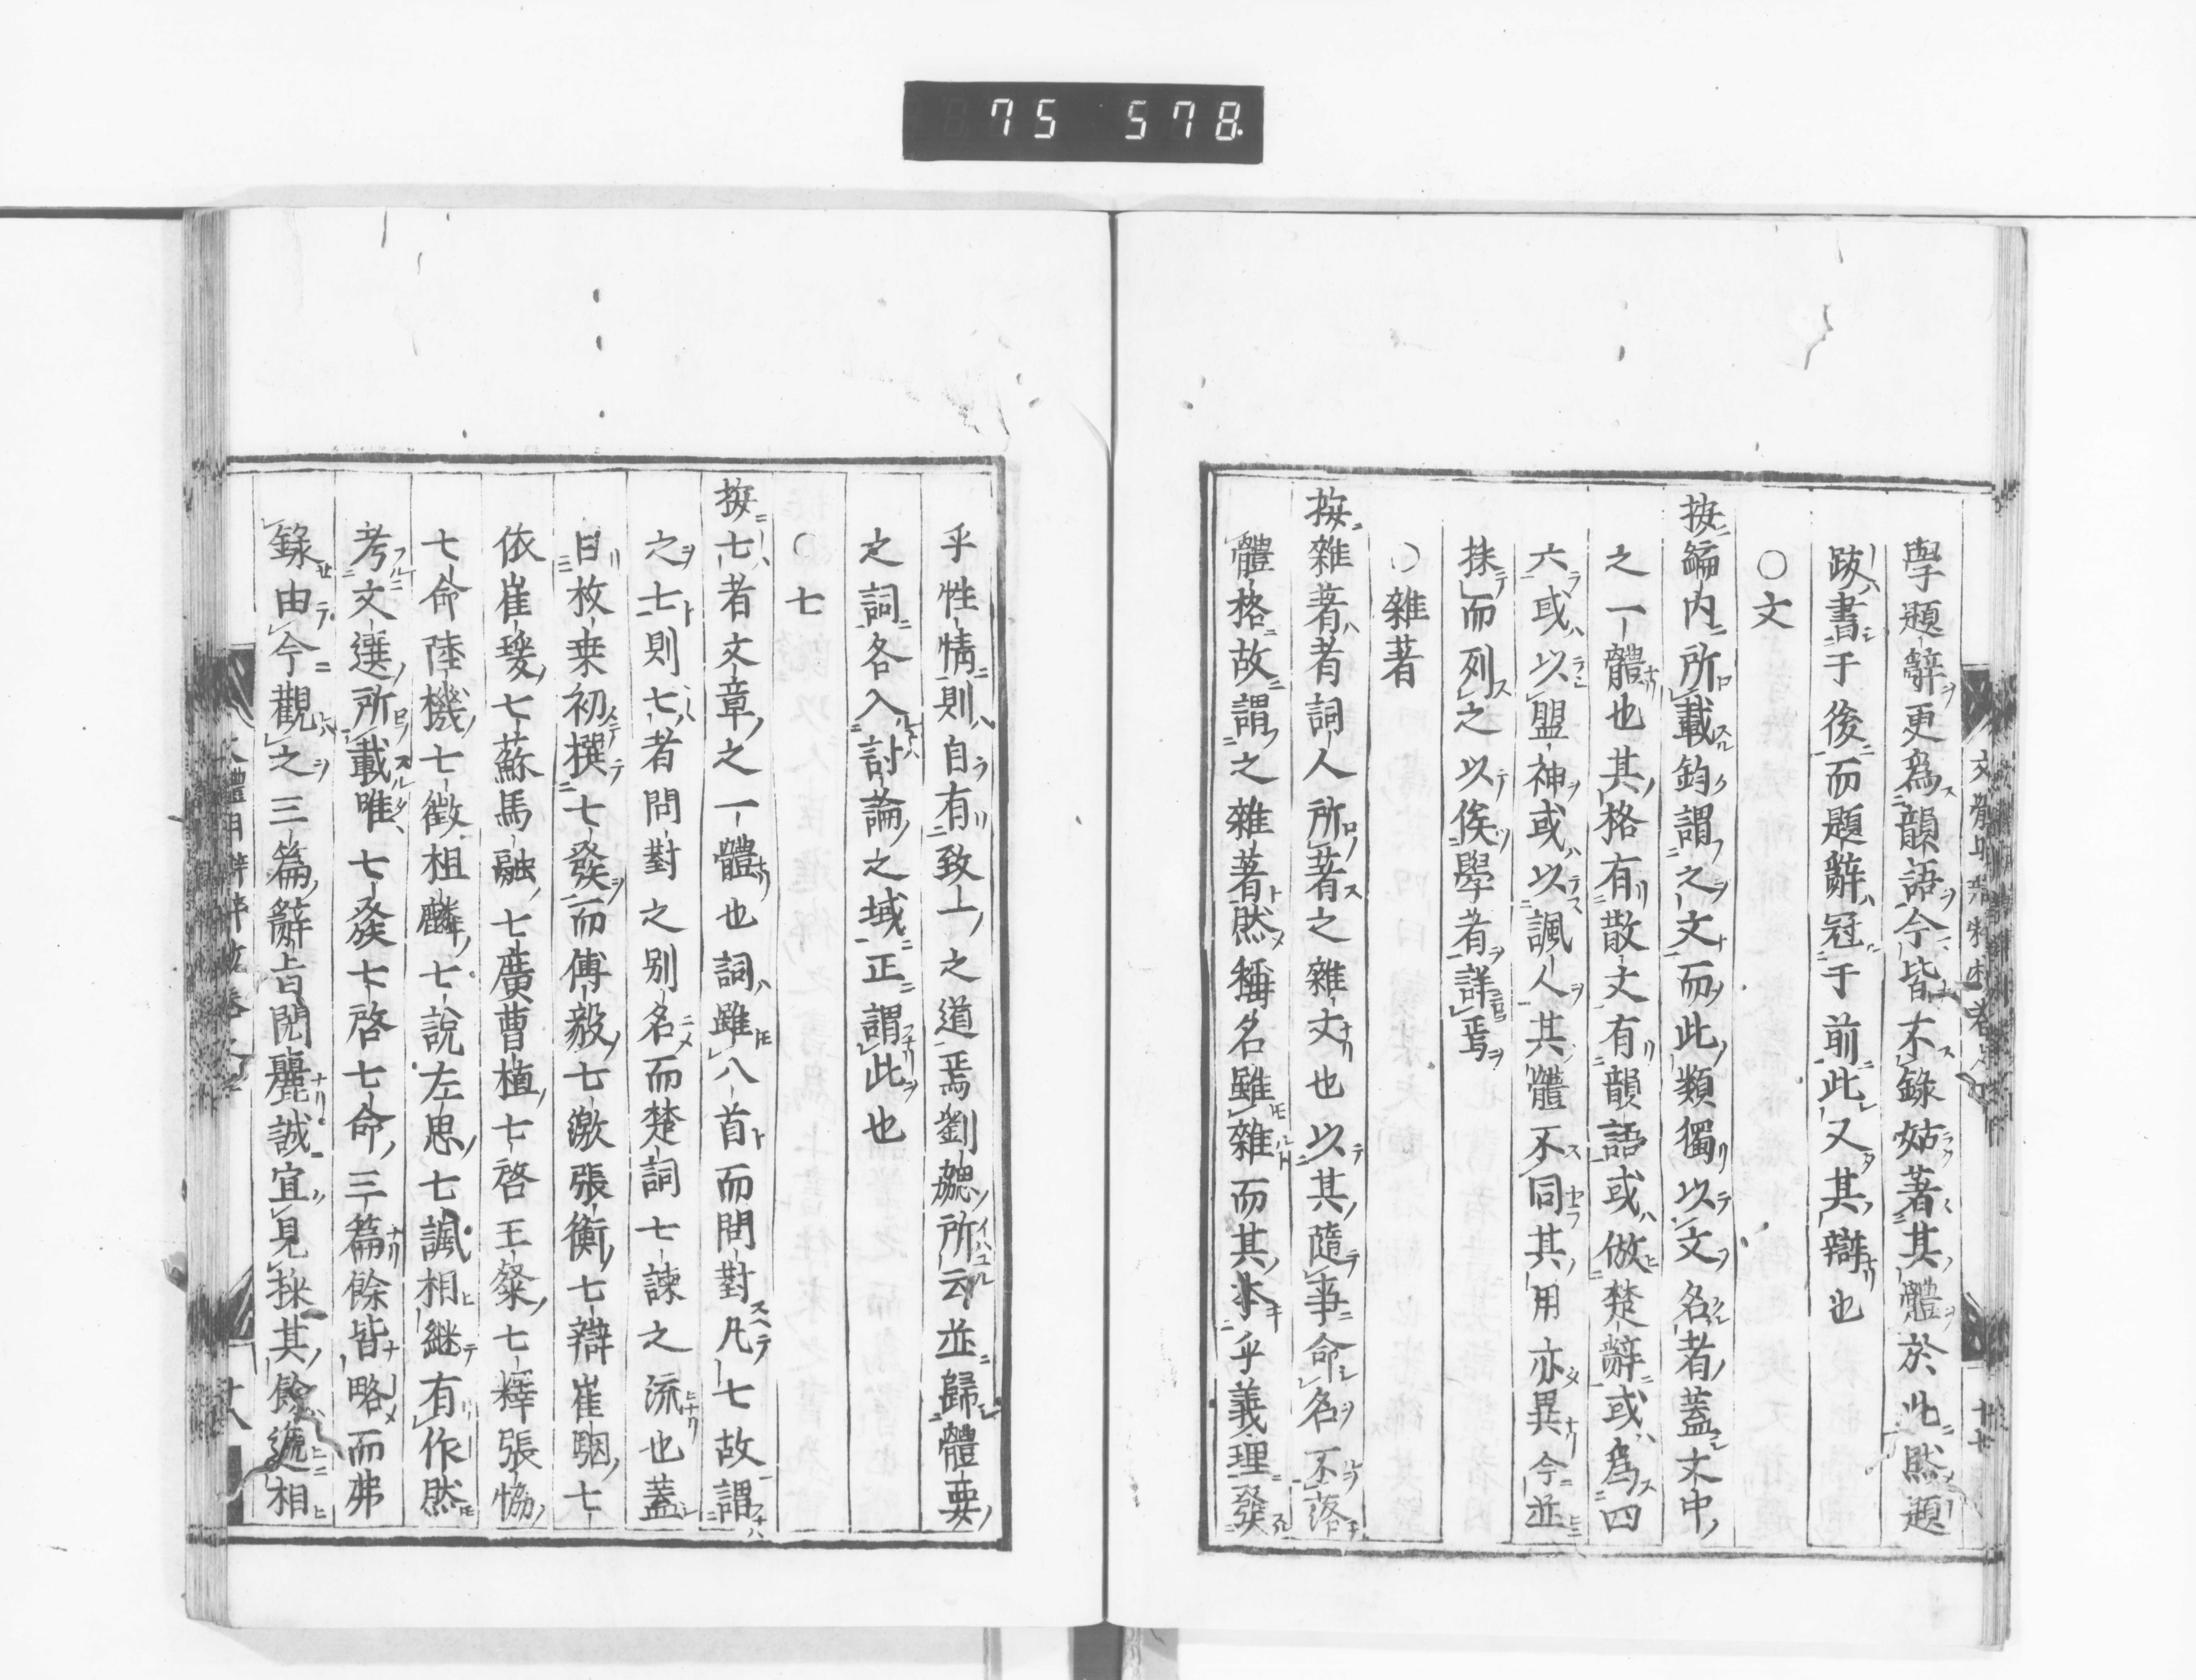 75 578
學題辭更爲韻語今皆不錄姑著其體於此然題
跋書于後而題辭冠于前此又其辯也
○文
按編内所載鈞謂之文而此類獨以文名者蓋文中
之一體也其格有散文有韻語或倣楚辭或爲四
六或以盟神或以諷人其體不同其用亦異今並
採而列之以俟學者詳焉
○雜著
按雜著者詞人所著之雜文也以其隨事命名不落
體格故謂之雜著然稱名雖雜而其本乎義理發
乎性情則自有致一之道焉劉勰所云並歸體要
之詞各入討論之域正謂此也
○七
按七者文章之一體也詞雖八首而問對凡七故謂
之七則七者問對之别名而楚詞七諫之流也蓋
自枚乗初撰七發而傅毅七激張衡七辯崔駰七
依崔瑗七蘇馬融七廣曹植七啓王粲七釋張協
七命陸機七徵桓麟七說左思七諷相継有作然
考文選所載唯七發七啓七命三篇餘皆略而弗
錄由今觀之三篇辭旨閎麗誠宜見採其餘遞相
十八